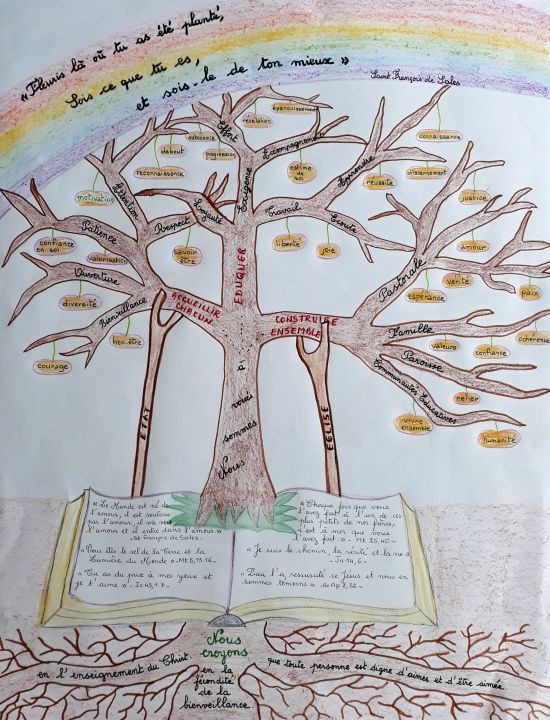 « Fleuris là où tu as été planté,
Sois ce que tu es,
et sois-le de ton mieux »
Saint François de Sales
épanouissement
révélation
Effort
autonomie
progression
debout
reconnaissance
Accompagnement
estime
de
soi
connaissance
discernement
réussite
justice
motivation
Attention
Respect
Exigence
Travail
Ecoute
Patience
confiance
en soi
valorisation
savoir
être
liberté
joie
amour
vérité
paix
Ouverture
diversité
Bienveillance
bien-être
courage
ACCUEILLIR
CHACUN
EDUQUER
CONSTRUIRE
ENSEMBLE
Pastorale
espérance
cohérence
Famille
valeurs
confiance
Paroisse
Communautés Educatives
relier
vivre
ensemble
humanité
ETAT
EGLISE
Nous
sommes
voués
à
...
« Le Monde est né de
l'amour, il est soutenu
par l'amour, il va vers
l'amour et il entre dans l'amour. »
- St François de Sales -
« Vous êtes le sel de la Terre et la
Lumière du Monde » - Mt 5,13.16 -
« Tu as du prix à mes yeux et
je t'aime » - Is 43,1.7 -
« Chaque fois que vous
l'avez fait à l'un de ces
plus petits de nos frères,
c'est à moi que vous
l'avez fait » - Mt 25,40 -
« Je suis le chemin, la vérité et la vie »
- Jn 14,6 -
« Dieu l'a ressuscité ce Jésus et nous en
sommes témoins » - Ac Ap 2,32 -
Nous
croyons
en l'enseignement du Christ.
en la
fécondité
de la
bienveillance.
que toute personne est digne d'aimer et d'être aimée.